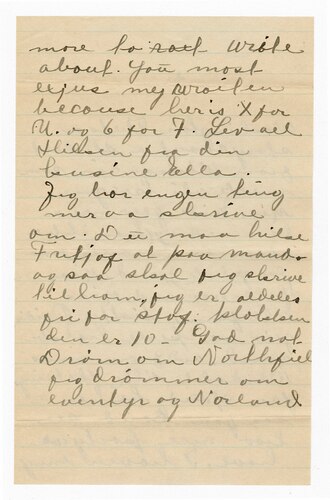 more to rait write
about. You most
exjus my wroiten
becouse her is X for
U. og 6 for F. Lev vel
Hilsen fra din
kusine Ella.
Jeg har engen ting
mer aa skrive
om. Du maa hilse
Fritjof at paa mandag
og saa skal jeg skrive
til ham, jeg er aldeles
fri for stof. klokken
den er 10 - God nat
Drøm om Northfiel
jeg drømmer om
eventyr og Norland